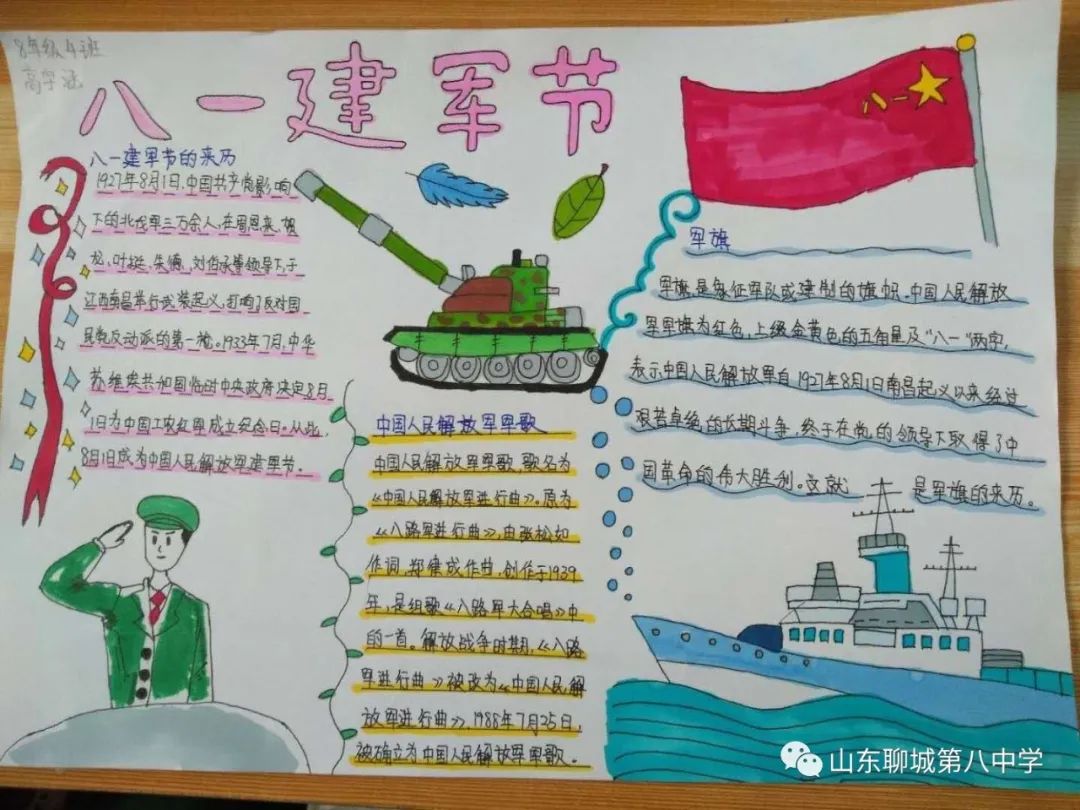 8年级4班
高宇涵
八一建军节
八一建军节的来历
1927年8月1日,中国共产党影响
下的北伐军三万余人,在周恩来、贺
龙、叶挺、朱德、刘伯承等领导下,于
江西南昌举行武装起义,打响了反对国
民党反动派的第一枪。1933年7月,中华
苏维埃共和国临时中央政府决定8月
1日为中国工农红军成立纪念日。从此,
8月1日成为中国人民解放军建军节。
中国人民解放军军歌
中国人民解放军军歌,歌名为
《中国人民解放军进行曲》。原为
《八路军进行曲》,由张松如
作词,郑律成作曲,创作于1939
年,是组歌《八路军大合唱》中
的一首。解放战争时期,《八路
军进行曲》被改为《中国人民解
放军进行曲》,1988年7月25日,
被确立为中国人民解放军军歌。
八一
军旗
军旗是象征军队或建制的旗帜。中国人民解放
军军旗为红色,上缀金黄色的五角星及"八一"两字,
表示中国人民解放军自1927年8月1日南昌起义以来经过
艰苦卓绝的长期斗争,终于在党的领导下取得了中
国革命的伟大胜利。这就是军旗的来历。
山东聊城第八中学